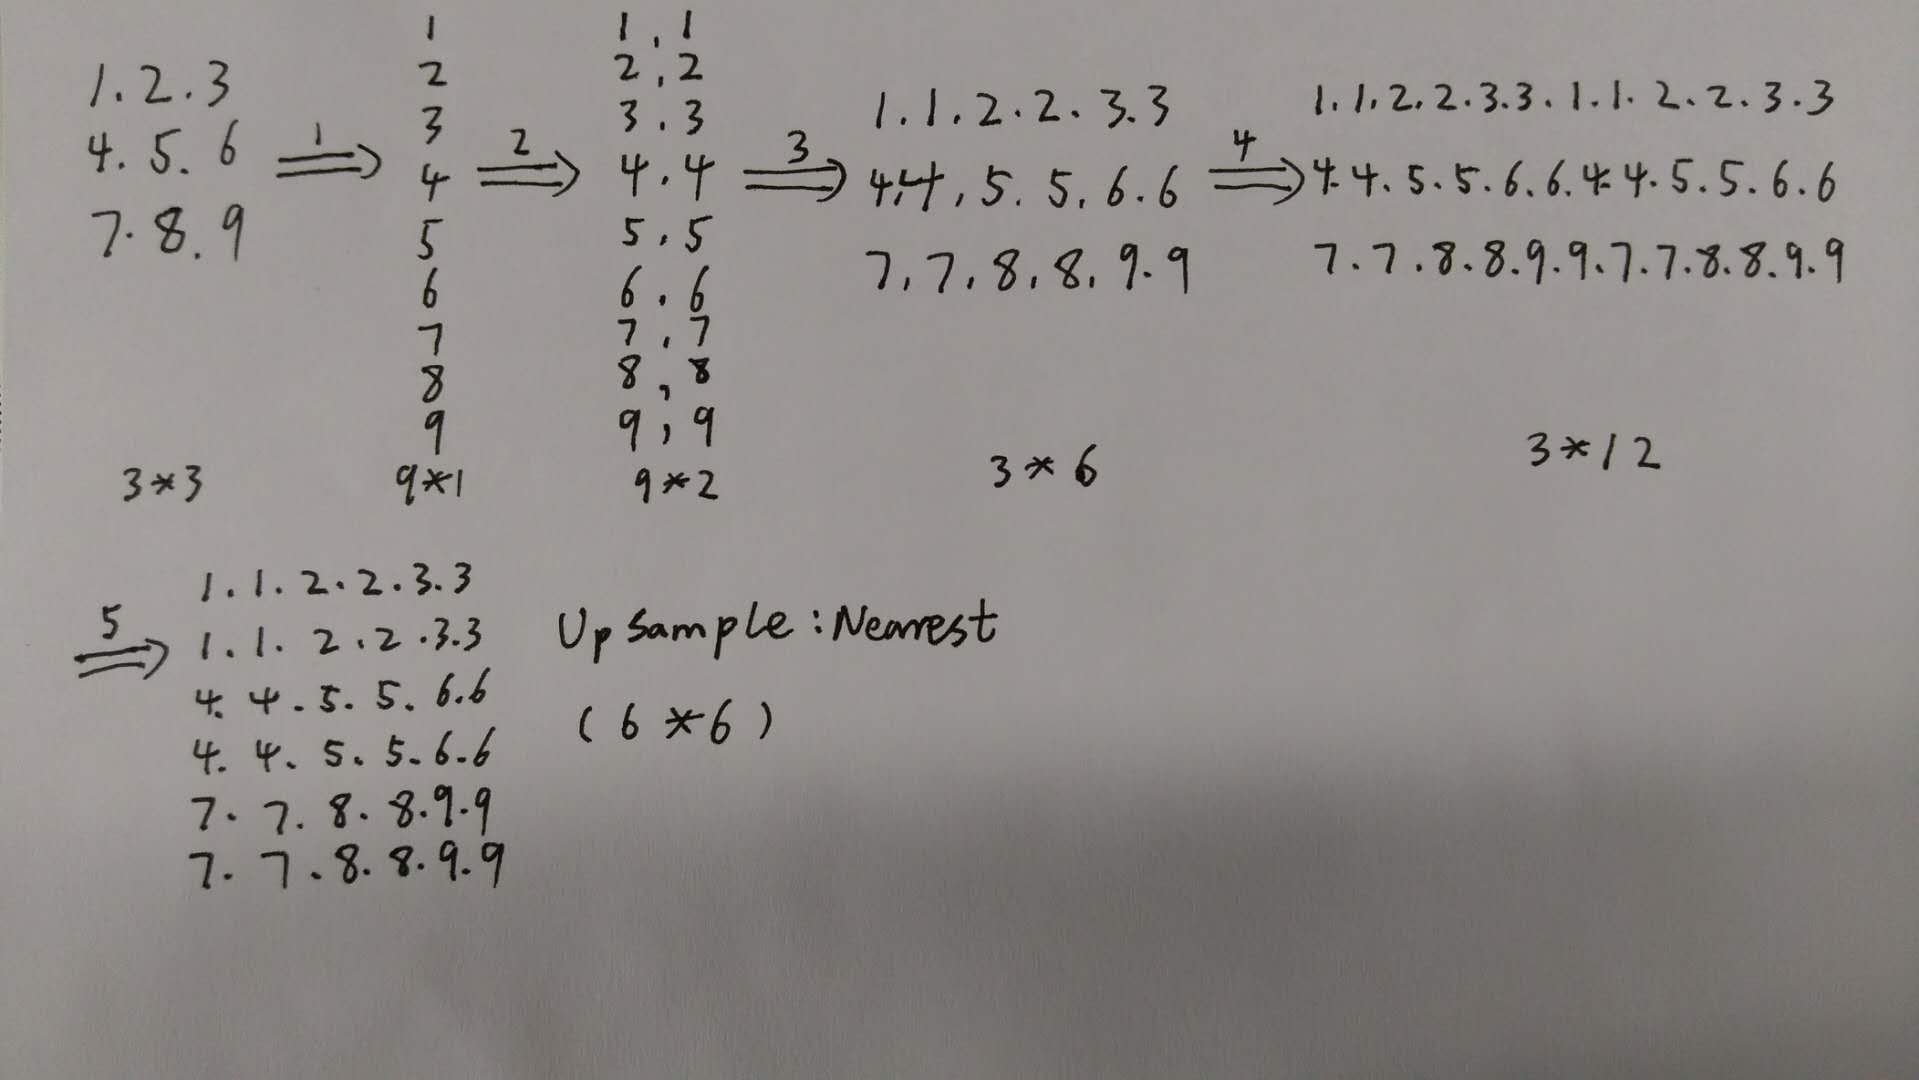 1.2.3
4.5.6
7.8.9
3*3
1
1
2
3
4
5
6
7
8
9
9*1
2
1,1
2,2
3.3
4.4
5,5
6.6
7,7
8,8
9,9
9*2
3
1.1.2.2.3.3
4,4,5.5,6.6
7,7,8,8,9.9
3*6
4
1.1.2.2.3.3.1.1.2.2.3.3
4.4.5.5.6.6.4.4.5.5.6.6
7.7.8.8.9.9.7.7.8.8.9.9
3*12
5
1.1.2.2.3.3
1.1.2.2.3.3
4.4.5.5.6.6
4.4.5.5.6.6
7.7.8.8.9.9
7.7.8.8.9.9
UpSample:Nearest
(6*6)